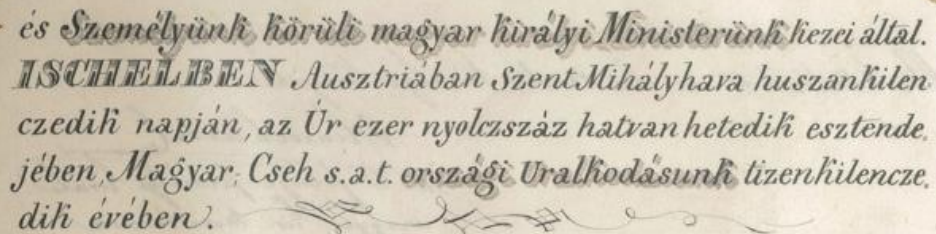 és Személyünk körüli magyar királyi Ministerünk kezei által.
ISCHELBEN Ausztriában Szent Mihály hava huszankilen
czedik napján, az Úr ezer nyolczszáz hatvan hetedik esztende,
jében, Magyar, Cseh s.a.t. országi Uralkodásunk tizenkilencze,
dik évében.